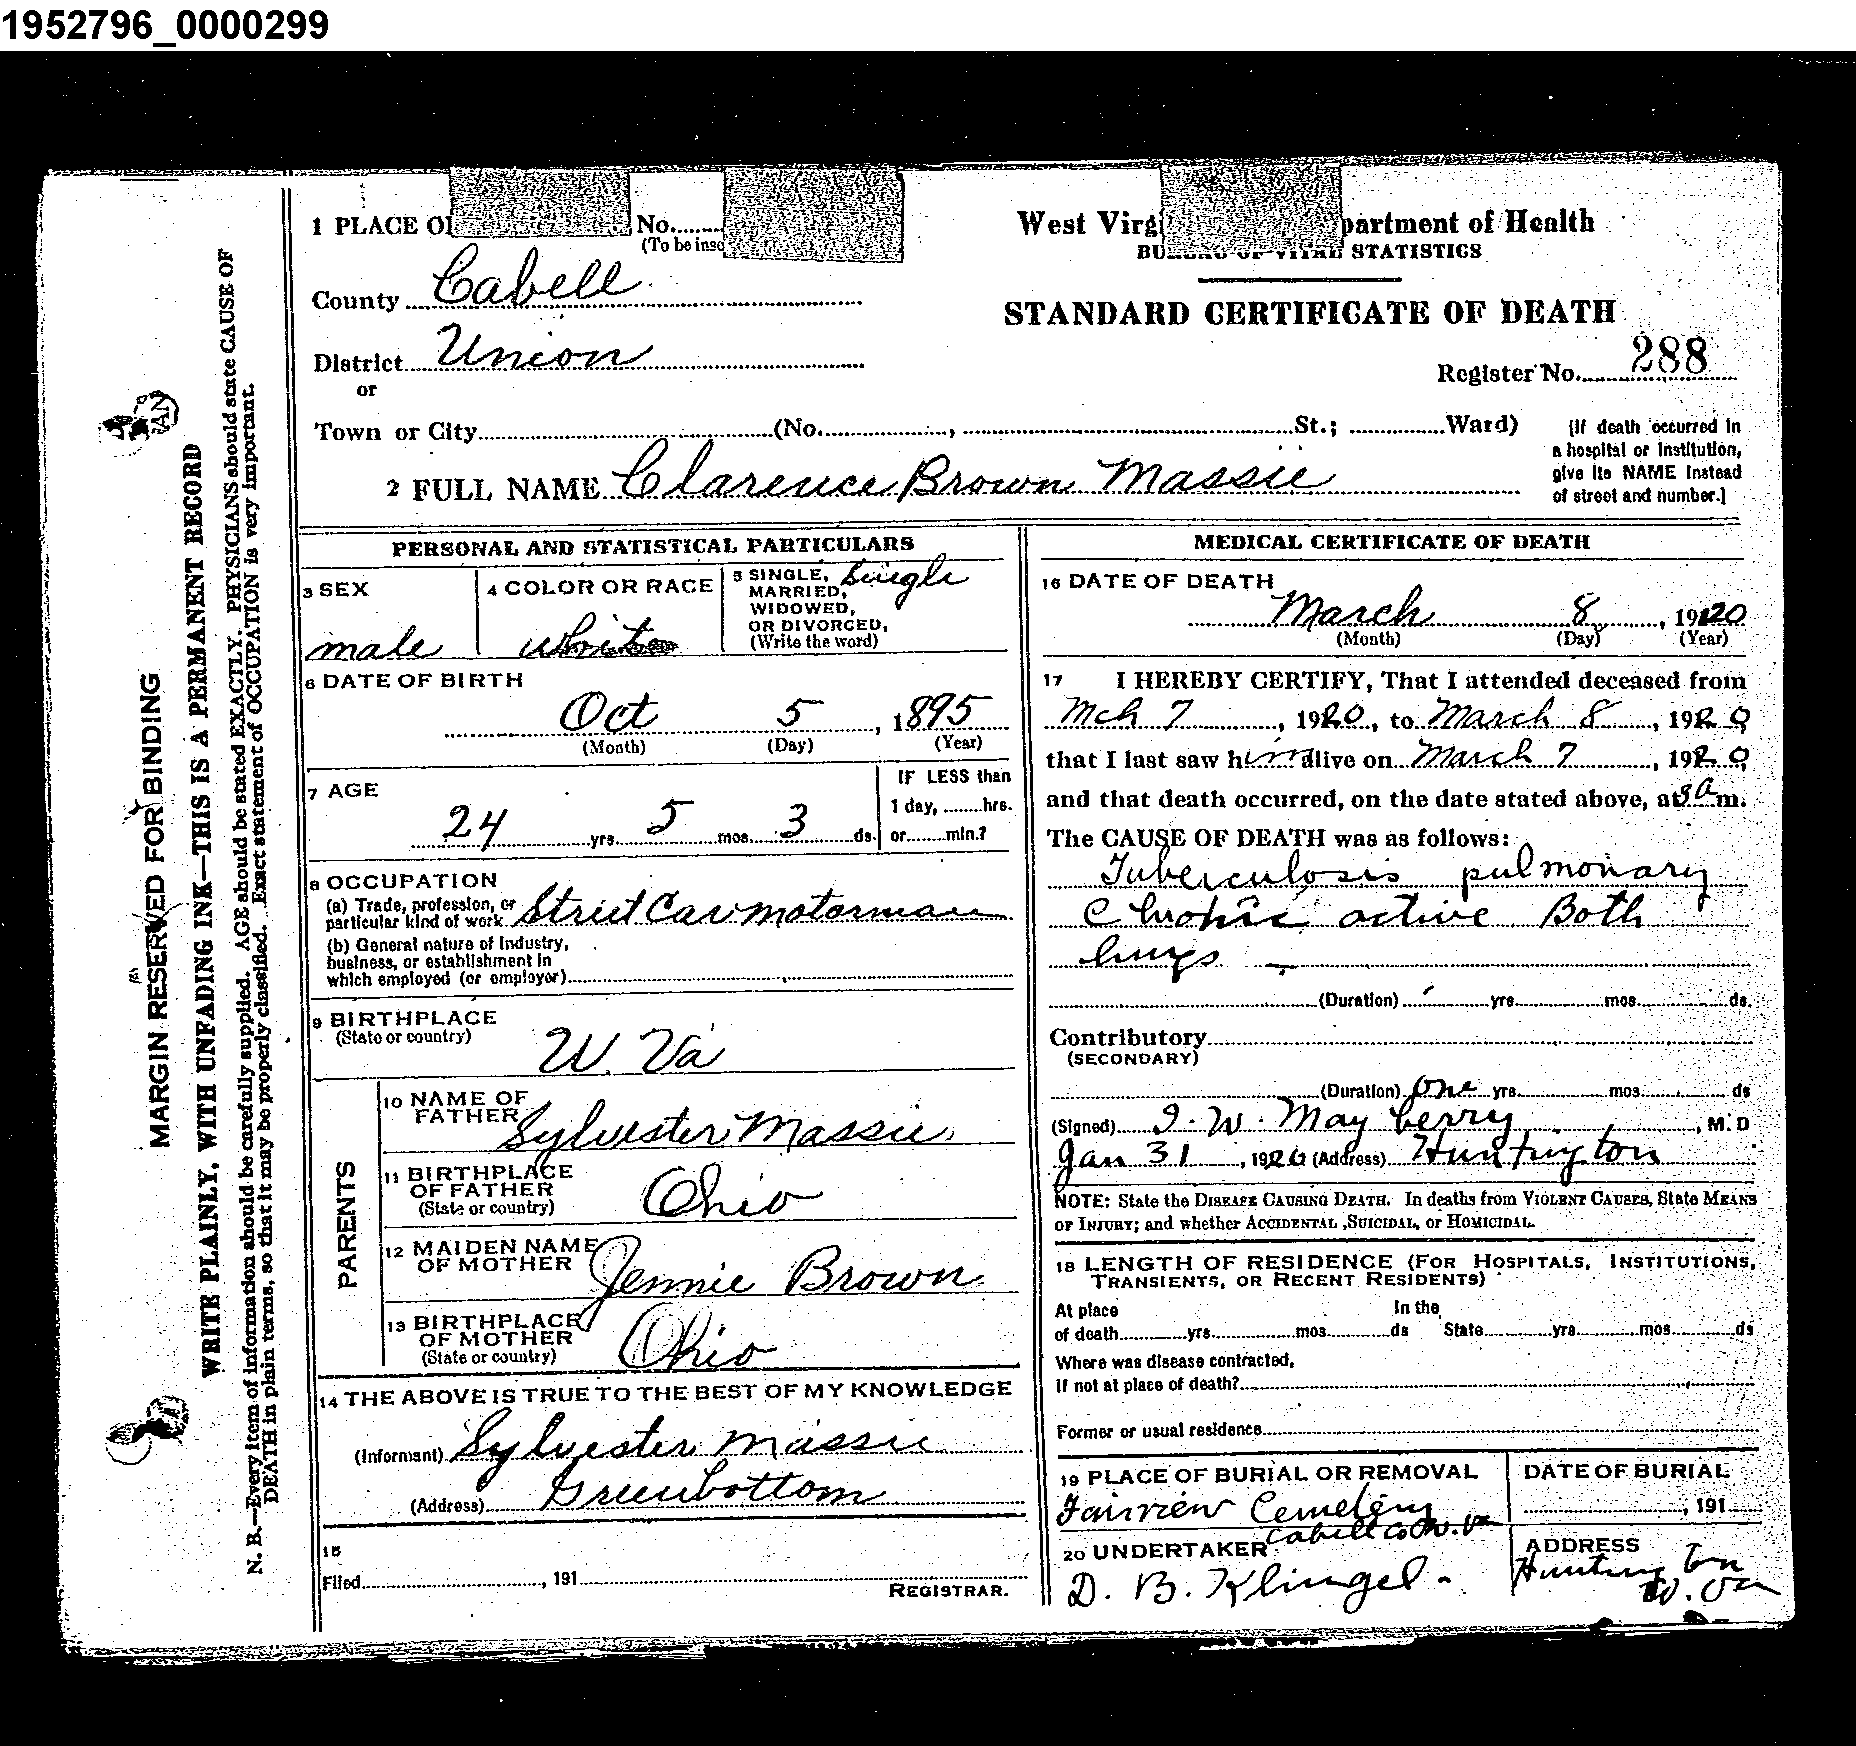 1952796_0000299
1 PLACE OF
No.
(To be inse
County Cabell
District Union
or
Town or City (No. , St.; Ward)
2 FULL NAME Clarence Brown Massie
West Virg partment of Health
BUREAU OF VITAL STATISTICS
STANDARD CERTIFICATE OF DEATH
Register No. 288
[If death occurred in
a hospital or institution,
give its NAME instead
of street and number.]
PERSONAL AND STATISTICAL PARTICULARS
3 SEX
male
4 COLOR OR RACE
White
5 SINGLE,
MARRIED,
WIDOWED,
OR DIVORCED,
(Write the word)
Single
6 DATE OF BIRTH
Oct 5, 1895
(Month) (Day) (Year)
7 AGE
24 yrs. 5 mos. 3 ds.
IF LESS than
1 day, hrs.
or min.?
8 OCCUPATION
(a) Trade, profession, or
particular kind of work Street Car motorman
(b) General nature of industry,
business, or establishment in
which employed (or employer)
9 BIRTHPLACE
(State or country)
W. Va
PARENTS
10 NAME OF
FATHER Sylvester Massie
11 BIRTHPLACE
OF FATHER
(State or country) Ohio
12 MAIDEN NAME
OF MOTHER Jennie Brown
13 BIRTHPLACE
OF MOTHER
(State or country) Ohio
14 THE ABOVE IS TRUE TO THE BEST OF MY KNOWLEDGE
(Informant) Sylvester Massie
(Address) Greenbottom
15
Filed , 191
REGISTRAR.
MEDICAL CERTIFICATE OF DEATH
16 DATE OF DEATH
March 8, 1920
(Month) (Day) (Year)
17 I HEREBY CERTIFY, That I attended deceased from
Mch 7, 1920, to March 8, 1920
that I last saw him alive on March 7, 1920
and that death occurred, on the date stated above, at m.
The CAUSE OF DEATH was as follows:
Tuberculosis pulmonary
Chronic active Both
lungs
(Duration) yrs. mos. ds.
Contributory
(SECONDARY)
(Duration) One yrs. mos. ds
(Signed) I. W. May berry, M. D
Jan 31, 192 (Address) Huntington
NOTE: State the DISEASE CAUSING DEATH. In deaths from VIOLENT CAUSES, State MEANS
OF INJURY; and whether ACCIDENTAL, SUICIDAL, or HOMICIDAL.
18 LENGTH OF RESIDENCE (FOR HOSPITALS, INSTITUTIONS,
TRANSIENTS, OR RECENT RESIDENTS)
At place In the
of death yrs. mos. ds State yrs. mos. ds
Where was disease contracted,
If not at place of death?
Former or usual residence
19 PLACE OF BURIAL OR REMOVAL
Fairview Cemetery
Cabell Co W. Va
DATE OF BURIAL
, 191
20 UNDERTAKER
D. B. Klingel
ADDRESS
Huntington
W. Va
MARGIN RESERVED FOR BINDING
WRITE PLAINLY, WITH UNFADING INK—THIS IS A PERMANENT RECORD
N. B.—Every item of information should be carefully supplied. AGE should be stated EXACTLY. PHYSICIANS should state CAUSE OF
DEATH in plain terms, so that it may be properly classified. Exact statement of OCCUPATION is very important.